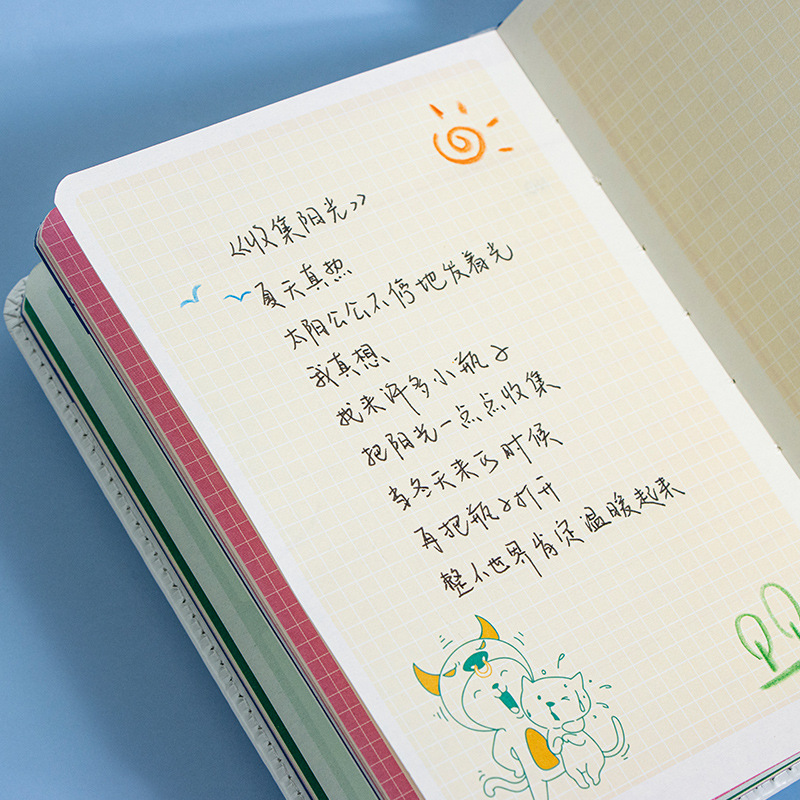 《收集阳光》
夏天真热
太阳公公不停地发着光
我真想
找来许多小瓶子
把阳光一点点收集
当冬天来的时候
再把瓶子打开
整个世界肯定温暖起来